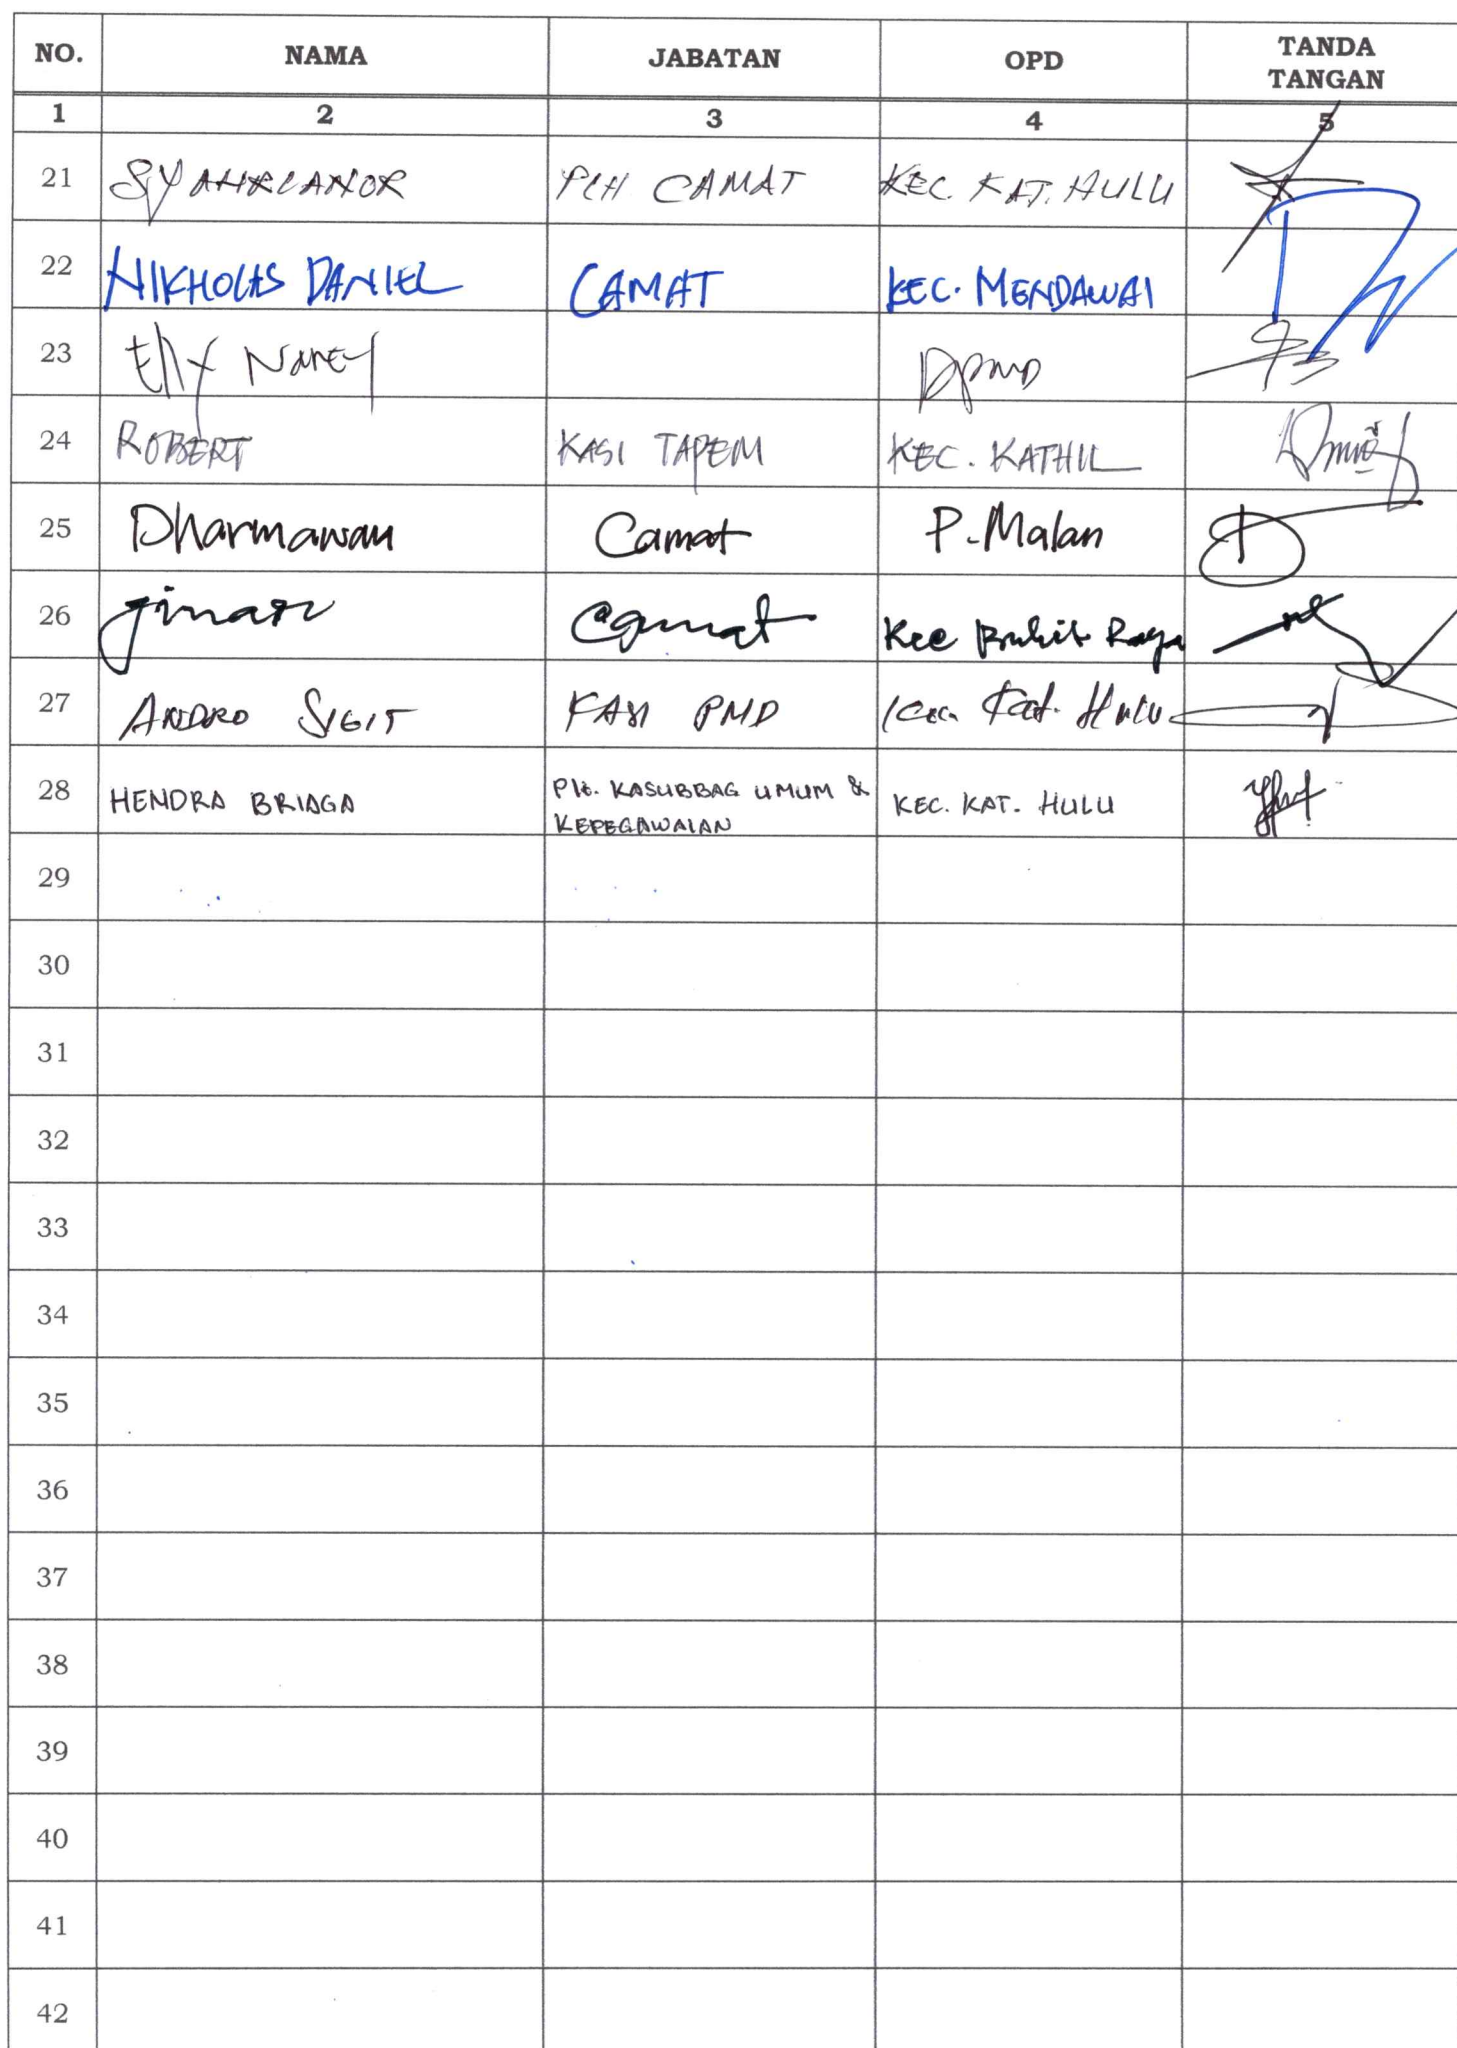 NO. NAMA JABATAN OPD TANDA TANGAN
1 2 3 4 5
21 SYAHRIANOR PLH CAMAT KEC. KAT. HULU
22 NIKHOLAS DANIEL CAMAT KEC. MENDAWAI
23 Elly DPMD
24 ROBERT KASI TAPEM KEC. KATHIL
25 Dharmawan Camat P. Malan
26 Camat Kec Bukit Raya
27 ANDRO SIGIT KASI PMD Kec. Kat. Hulu
28 HENDRA BRIAGA Plt. KASUBBAG UMUM & KEPEGAWAIAN KEC. KAT. HULU
29
30
31
32
33
34
35
36
37
38
39
40
41
42